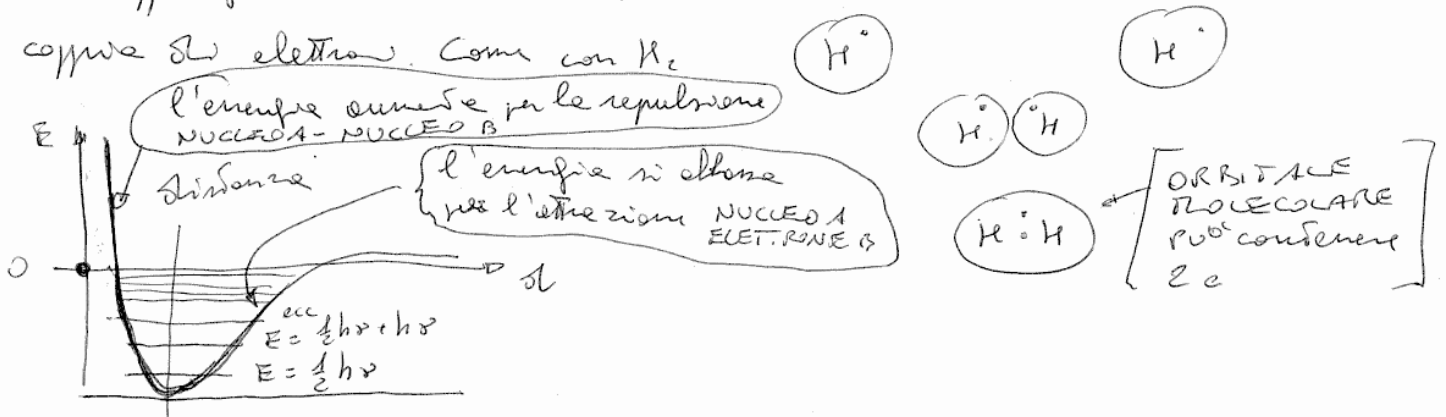 coppia di elettroni. Come con H₂
H·
H·
l'energia aumenta per la repulsione
NUCLEO A - NUCLEO B
H· ·H
E
distanza
l'energia si abbassa
per l'attrazione NUCLEO A
ELETTRONE B
H : H
ORBITALE
MOLECOLARE
PUO' contenere
2 e
O
d
ecc
E = ½hν + hν
E = ½hν